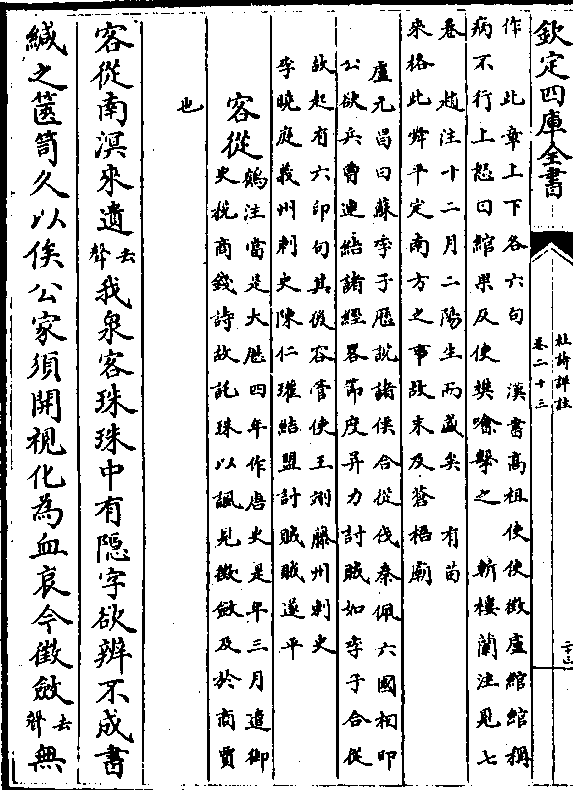 欽定四庫全書
杜詩詳註
卷二十三
作 此章上下各六句 漢書高祖使使徵盧綰綰稱
病不行上怒曰綰果反使樊噲擊之 斬樓蘭注見七
卷 趙注十二月二陽生而盛矣 有苗
來格此舜平定南方之事故末及蒼梧廟
盧元昌曰蘇季子歷說諸侯合從伐秦佩六國相印
公欲兵曹連絡諸經畧節度并力討賊如季子合從
故起有六印句其後容管使王翃藤州刺史
李曉庭義州刺史陳仁璀結盟討賊賊遂平
客從
鶴注當是大厯四年作唐史是年三月遣御
史稅商錢詩故託珠以諷見徵斂及於商賈
也
客從南溟來遺
去
聲
我泉客珠珠中有隱字欲辨不成書
緘之篋笥久以俟公家須開視化為血哀今徵斂
去
聲
無